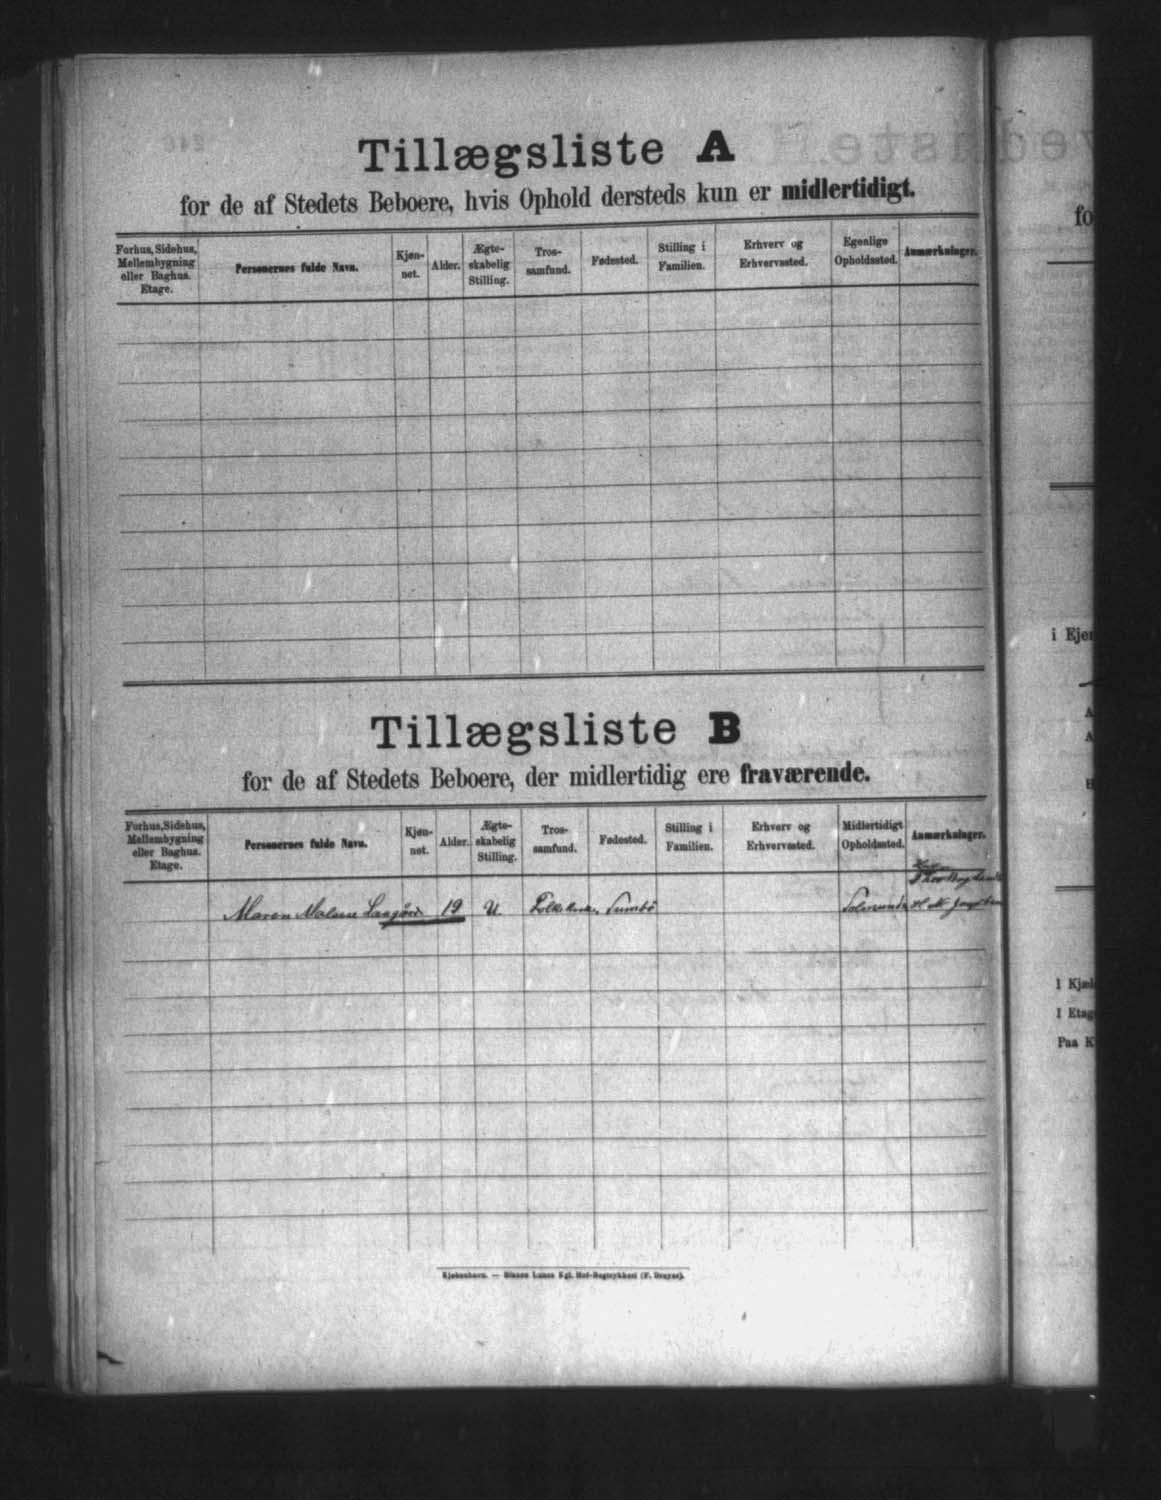 Tillægsliste A
for de af Stedets Beboere, hvis Ophold dersteds kun er midlertidigt.
Forhus, Sidehus, Mellembygning eller Baghus. Etage.
Personernes fulde Navn.
Kjøn-
net.
Alder.
Ægte-
skabelig
Stilling.
Tros-
samfund.
Fødested.
Stilling i
Familien.
Erhverv og
Erhvervssted.
Egenlige
Opholdssted.
Anmærkninger.
Tillægsliste B
for de af Stedets Beboere, der midlertidig ere fraværende.
Forhus, Sidehus,
Mellembygning
eller Baghus.
Etage.
Personernes fulde Navn.
Kjøn-
net.
Alder.
Ægte-
skabelig
Stilling.
Tros-
samfund.
Fødested.
Stilling i
Familien.
Erhverv og
Erhvervssted.
Midlertidigt
Opholdssted.
Anmærkninger.
Maren Malene 19 U Folkekirken Sumbø
Kjøbenhavn. — Bianco Lunos Kgl. Hof-Bogtrykkeri (F. Dreyer).
fo
i Ejen
I Kjæl
I Etag
Paa K